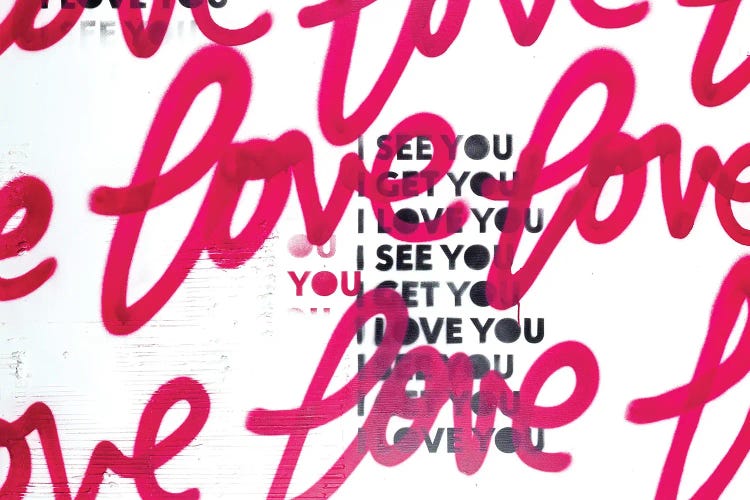 I LOVE YOU
I SEE YOU
love love
love love
e
I SEE YOU
I GET YOU
I LOVE YOU
I SEE YOU
I GET YOU
I LOVE YOU
I SEE YOU
I GET YOU
I LOVE YOU
OU
YOU
love love